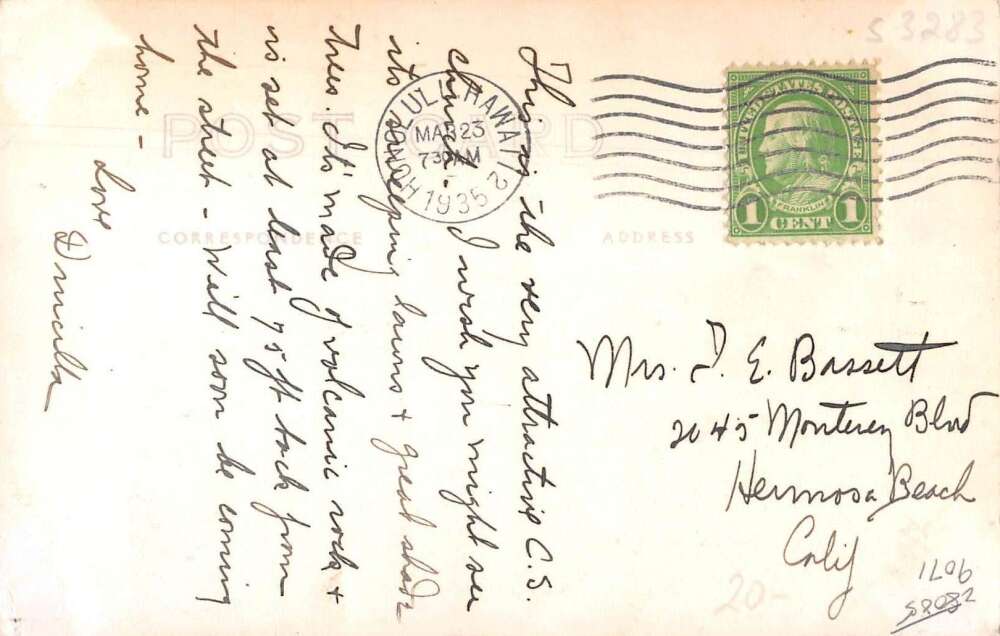 This is the very attractive C.S.
church. I wish you might see
its sweeping lawns + great shade
trees. It's made of volcanic rock +
is set at least 75 ft back from
the street - Will soon be coming
home -
Love
Drucilla
POST CARD
CORRESPONDENCE
ADDRESS
HONOLULU, HAWAII
MAR 23
730 AM
1935
2
UNITED STATES POSTAGE
FRANKLIN
1 CENT 1
Mrs. I. E. Bassett
2045 Monterey Blvd
Hermosa Beach
Calif
S 3283
20-
1L06